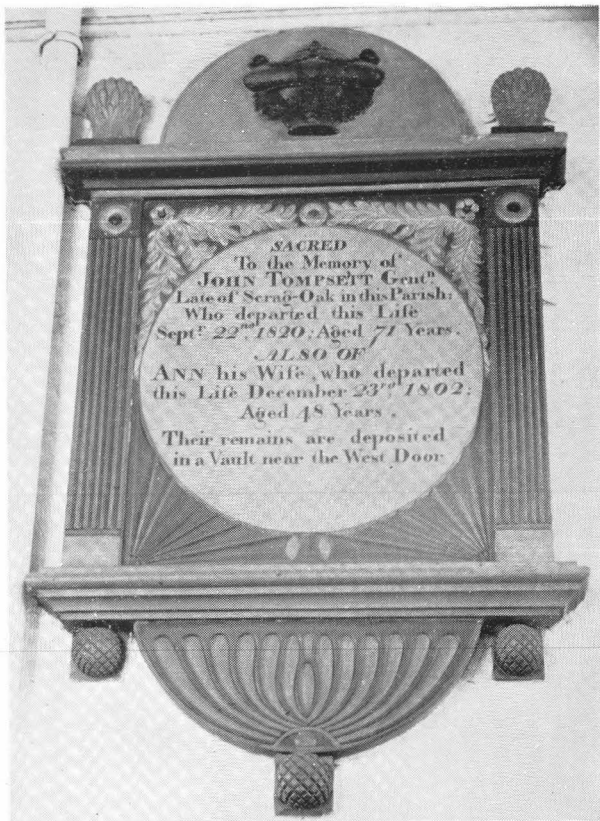 SACRED
To the Memory of
JOHN TOMPSETT Gentn.
Late of Scrag-Oak in this Parish:
Who departed this Life
Septr. 22nd. 1820; Aged 71 Years.
ALSO OF
ANN his Wife, who departed
this Life December 23rd. 1802;
Aged 48 Years.
Their remains are deposited
in a Vault near the West Door